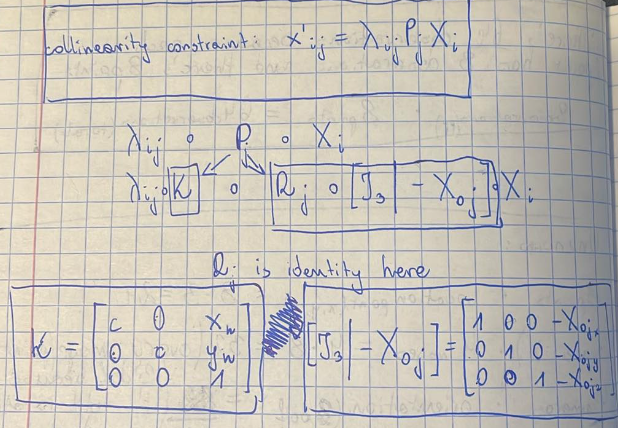 collinearity constraint: x'ij = λij Pj Xi
λij ∘ P ∘ Xi
λij ∘ K ∘ Rj ∘ [I3 | - X0j] ∘ Xi
Rj is identity here
K = [ c 0 xH
0 c yH
0 0 1 ]
[I3 | - X0j] = [ 1 0 0 -X0jx
0 1 0 -X0jy
0 0 1 -X0jz ]